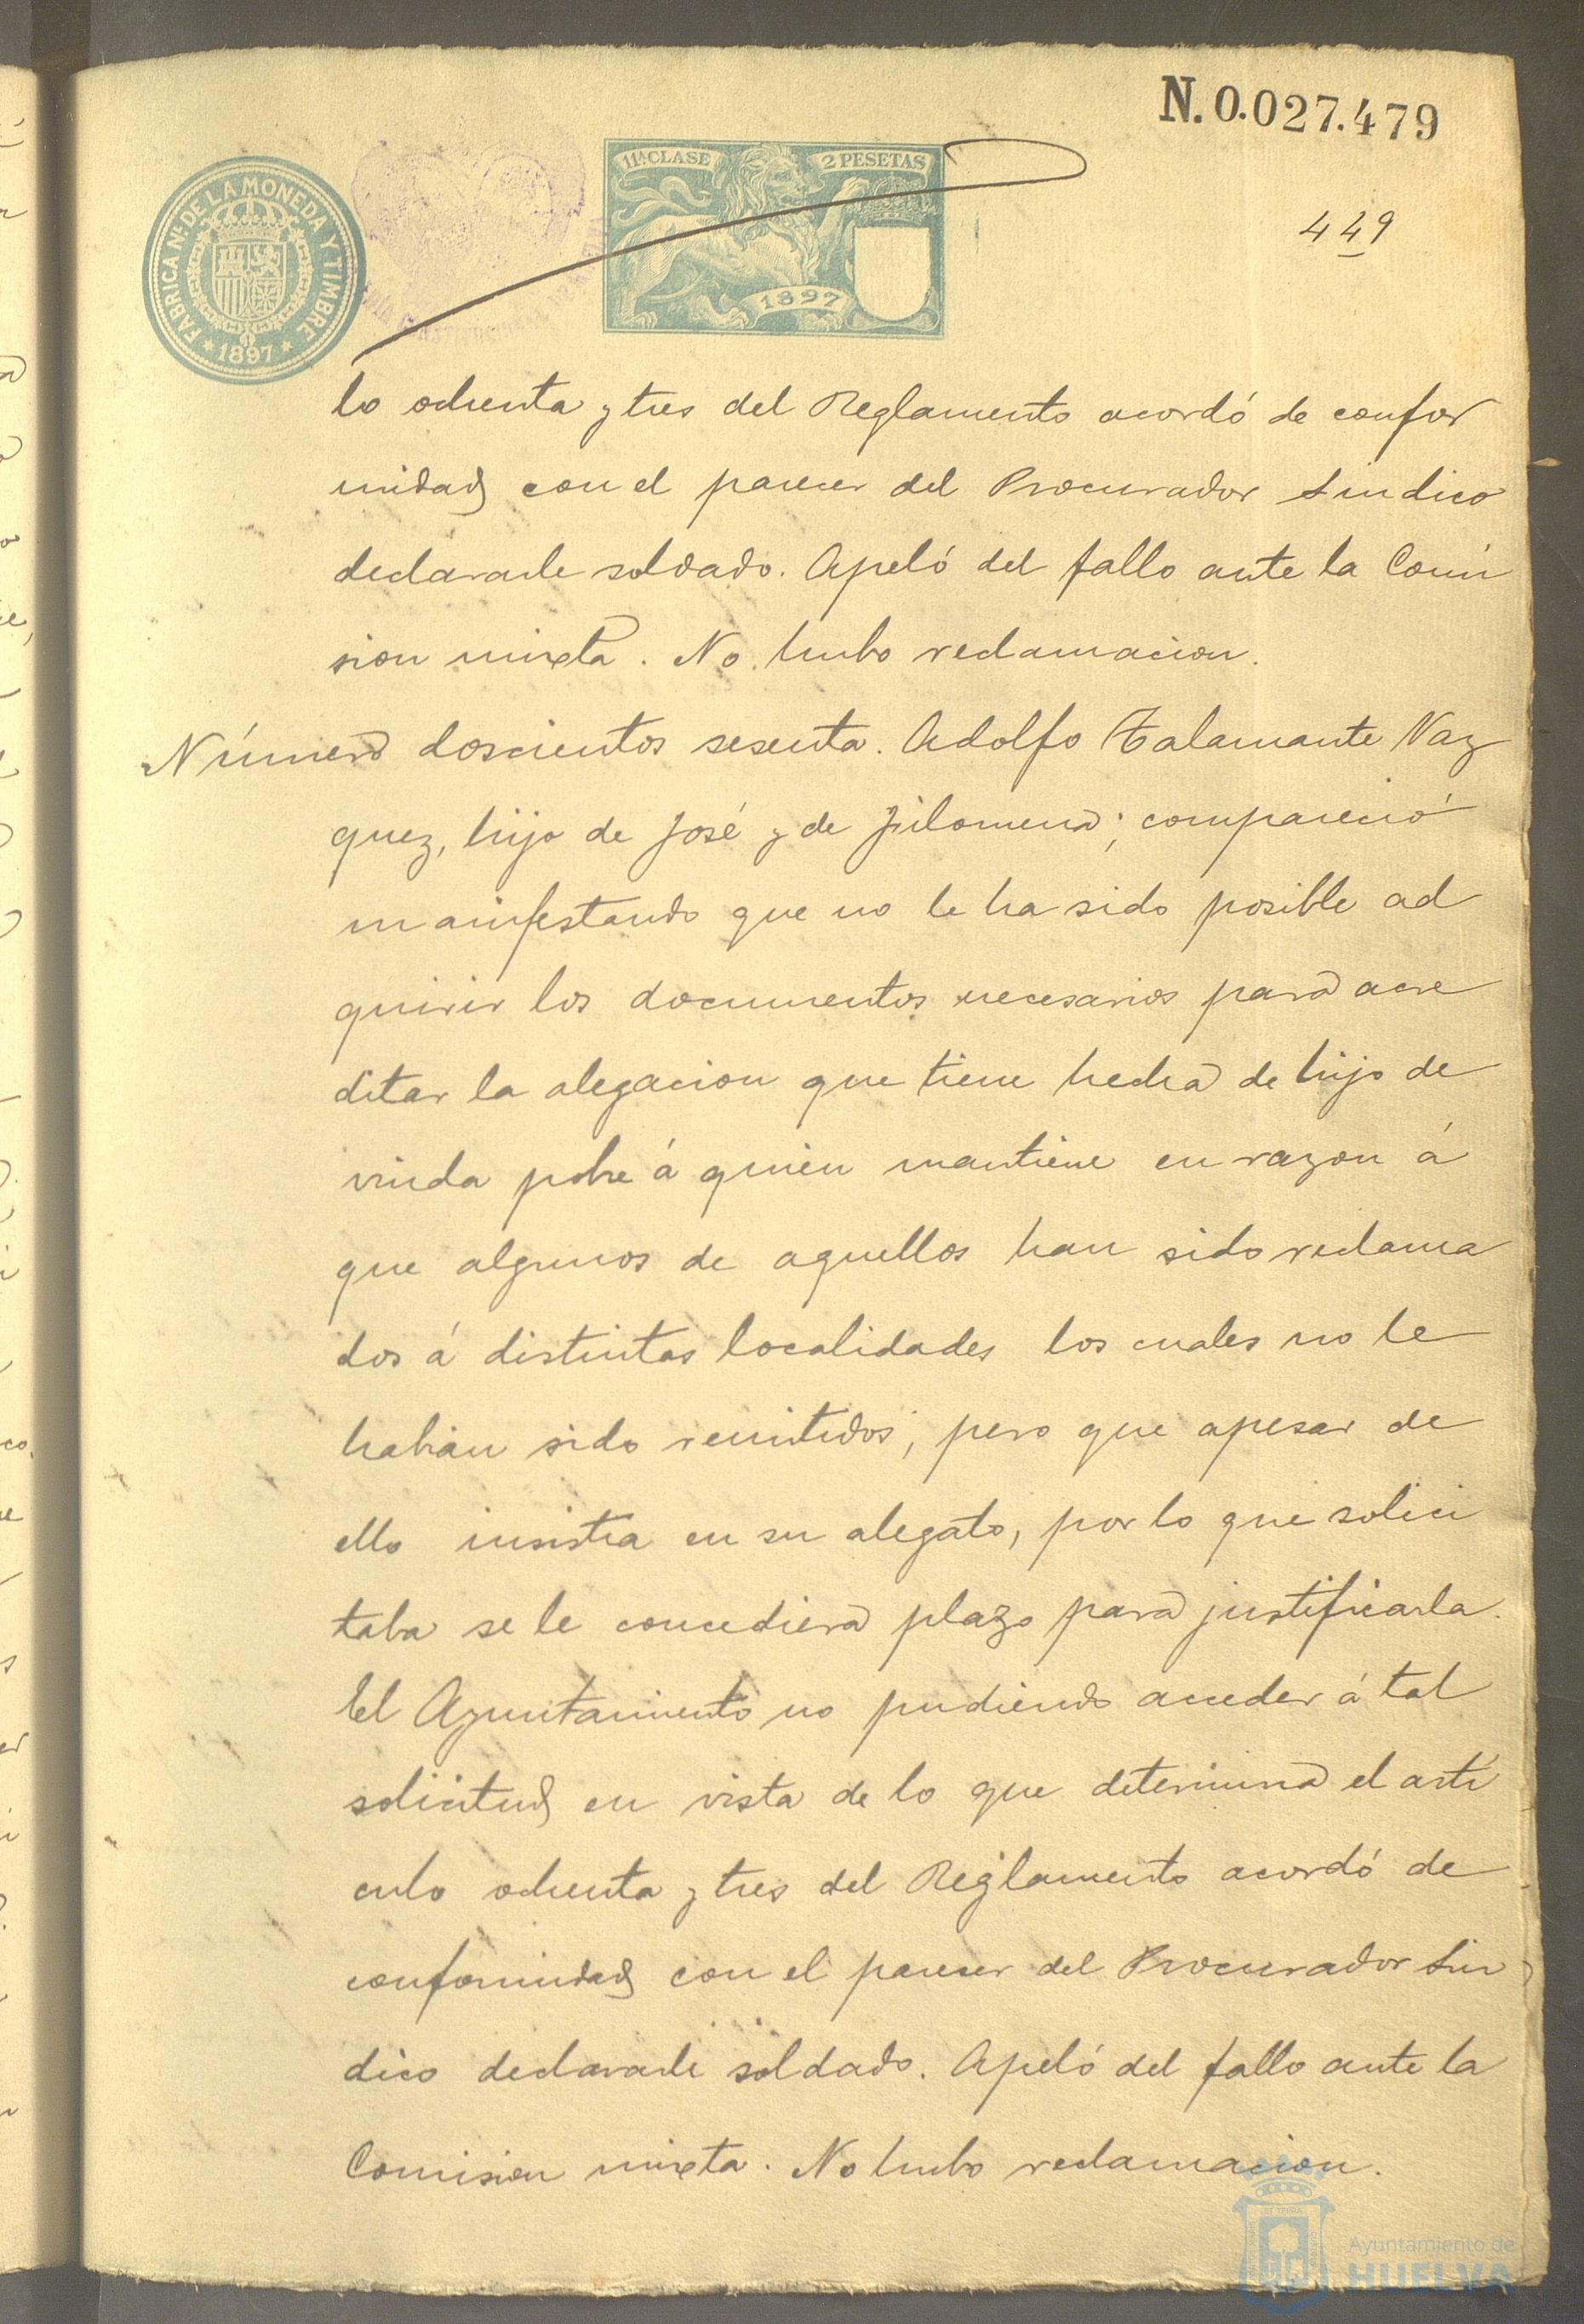 N. 0.027.479
11ª CLASE 2 PESETAS
FABRICA Nal DE LA MONEDA Y TIMBRE
* 1897 *
1897
449
lo ochenta y tres del Reglamento acordó de confor
midad con el parecer del Procurador Sindico
declararle soldado. Apeló del fallo ante la Comi
sion mixta. No hubo reclamacion.
Número doscientos sesenta. Adolfo Talamante Vaz
quez, hijo de José y de Filomena; compareció
manifestando que no le ha sido posible ad
quirir los documentos necesarios para acre
ditar la alegacion que tiene hecha de hijo de
viuda pobre á quien mantiene en razon á
que algunos de aquellos han sido reclama
dos á distintas localidades los cuales no le
habian sido remitidos, pero que apesar de
ello insistia en su alegato, por lo que solici
taba se le concediera plazo para justificarla.
El Ayuntamiento no pudiendo acceder á tal
solicitud en vista de lo que determina el arti
culo ochenta y tres del Reglamento acordó de
conformidad con el parecer del Procurador Sin
dico declararle soldado. Apeló del fallo ante la
Comision mixta. No hubo reclamacion.
Ayuntamiento de
HUELVA